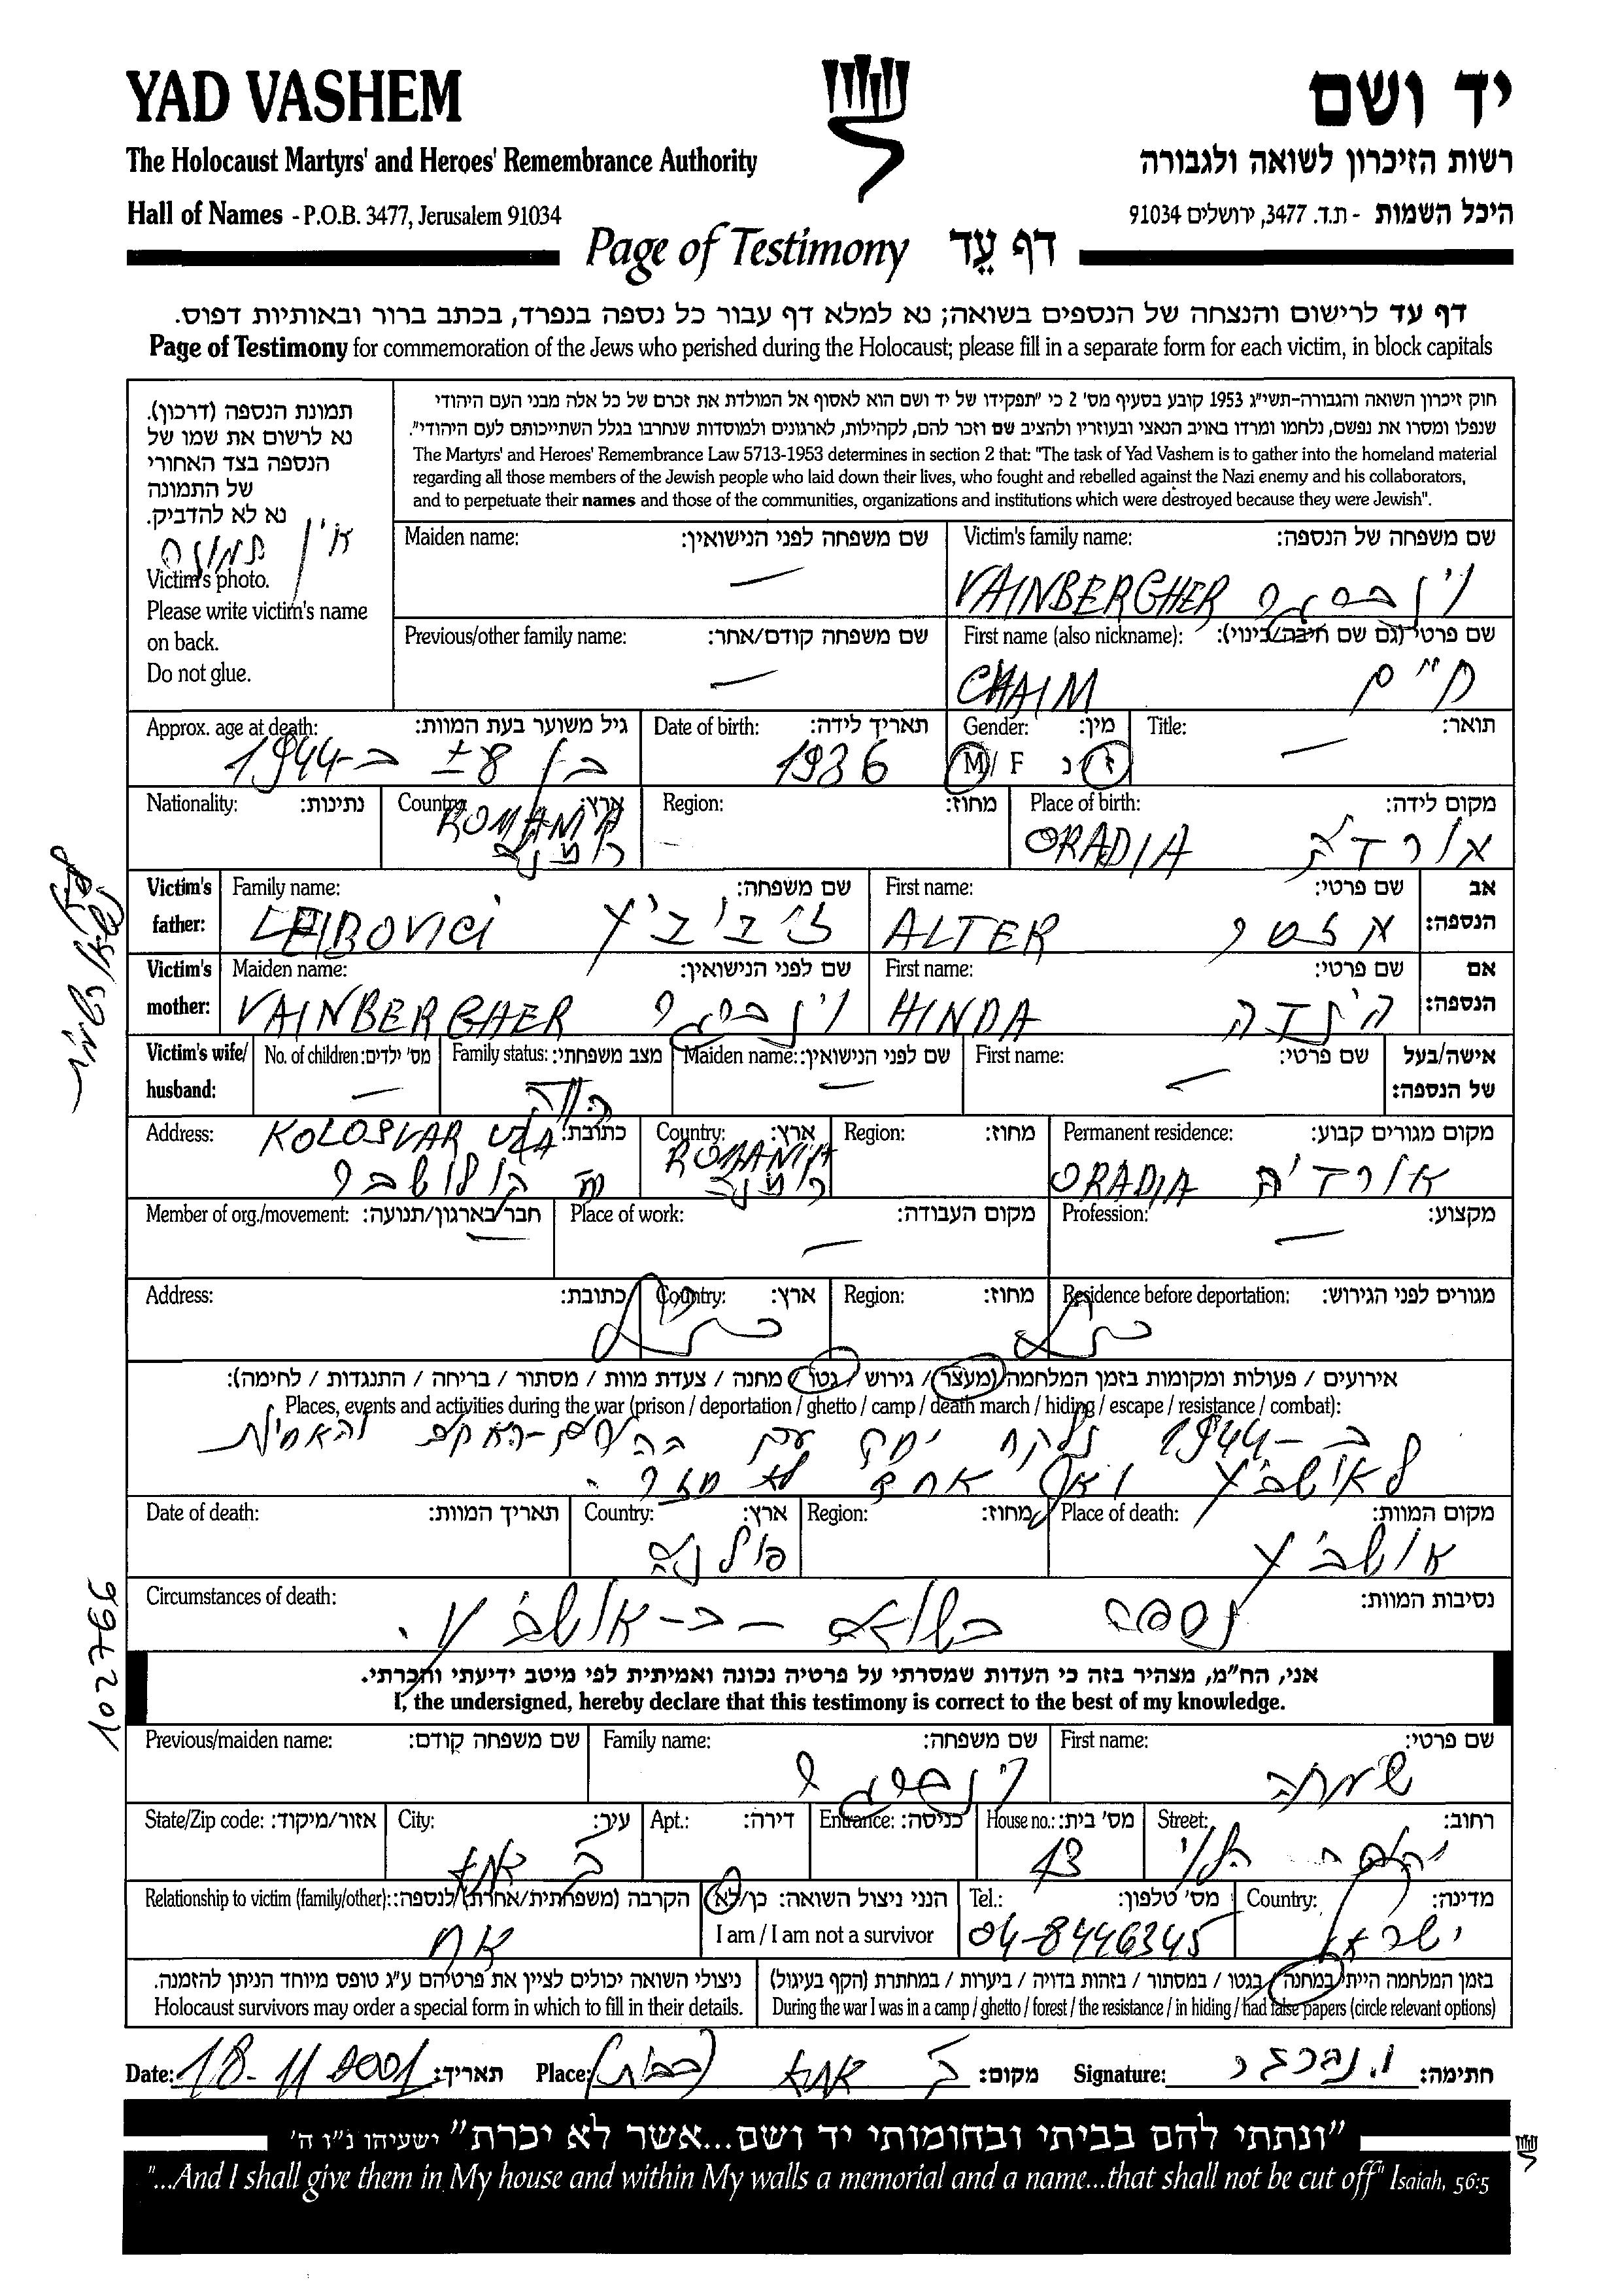 YAD VASHEM
יד ושם
The Holocaust Martyrs' and Heroes' Remembrance Authority
רשות הזיכרון לשואה ולגבורה
Hall of Names - P.O.B. 3477, Jerusalem 91034
היכל השמות - ת.ד. 3477, ירושלים 91034
Page of Testimony דף עֵד
דף עד לרישום והנצחה של הנספים בשואה; נא למלא דף עבור כל נספה בנפרד, בכתב ברור ובאותיות דפוס.
Page of Testimony for commemoration of the Jews who perished during the Holocaust; please fill in a separate form for each victim, in block capitals
תמונת הנספה (דרכון).
נא לרשום את שמו של
הנספה בצד האחורי
של התמונה
נא לא להדביק.
אין תמונה
Victim's photo.
Please write victim's name
on back.
Do not glue.
חוק זיכרון השואה והגבורה-תשי"ג 1953 קובע בסעיף מס' 2 כי "תפקידו של יד ושם הוא לאסוף אל המולדת את זכרם של כל אלה מבני העם היהודי
שנפלו ומסרו את נפשם, נלחמו ומרדו באויב הנאצי ובעוזריו ולהציב שם וזכר להם, לקהילות, לארגונים ולמוסדות שנחרבו בגלל השתייכותם לעם היהודי".
The Martyrs' and Heroes' Remembrance Law 5713-1953 determines in section 2 that: "The task of Yad Vashem is to gather into the homeland material
regarding all those members of the Jewish people who laid down their lives, who fought and rebelled against the Nazi enemy and his collaborators,
and to perpetuate their names and those of the communities, organizations and institutions which were destroyed because they were Jewish".
Maiden name: שם משפחה לפני הנישואין:
—
Victim's family name: שם משפחה של הנספה:
VAINBERGHER וינברגר
Previous/other family name: שם משפחה קודם/אחר:
—
First name (also nickname): שם פרטי (גם שם חיבה/כינוי):
CHAIM חיים
Approx. age at death: גיל משוער בעת המוות:
בן 8 ± ב-1944
Date of birth: תאריך לידה:
1936
Gender: מין:
M / F ז / נ
Title: תואר:
—
Nationality: נתינות:
Country: ארץ:
ROMANIA
רומניה
Region: מחוז:
Place of birth: מקום לידה:
ORADIA אורדיה
Victim's father: Family name: שם משפחה:
LEIBOVICI לייבוביץ
First name: שם פרטי: אב הנספה:
ALTER אלטר
Victim's mother: Maiden name: שם לפני הנישואין:
VAINBERGHER וינברגר
First name: שם פרטי: אם הנספה:
HINDA הינדה
Victim's wife/ husband: No. of children: מס' ילדים:
—
Family status: מצב משפחתי:
רווק
Maiden name: שם לפני הנישואין:
—
First name: שם פרטי: אישה/בעל של הנספה:
—
Address: כתובת:
KOLOSVAR UZA
קולושבר
Country: ארץ:
ROMANIA
רומניה
Region: מחוז:
Permanent residence: מקום מגורים קבוע:
ORADIA אורדיה
Member of org./movement: חבר בארגון/תנועה:
—
Place of work: מקום העבודה:
—
Profession: מקצוע:
—
Address: כתובת:
Country: ארץ:
Region: מחוז:
Residence before deportation: מגורים לפני הגירוש:
אירועים / פעולות ומקומות בזמן המלחמה (מעצר / גירוש / גטו / מחנה / צעדת מוות / מסתור / בריחה / התנגדות / לחימה):
Places, events and activities during the war (prison / deportation / ghetto / camp / death march / hiding / escape / resistance / combat):
ב-1944 נלקח יחד עם ההורים-האחים והאחיות
לאושביץ ואף אחד לא חזר.
Date of death: תאריך המוות:
Country: ארץ:
פולניה
Region: מחוז:
Place of death: מקום המוות:
אושביץ
Circumstances of death: נסיבות המוות:
נספה בשואה - ב-אושביץ.
אני, הח"מ, מצהיר בזה כי העדות שמסרתי על פרטיה נכונה ואמיתית לפי מיטב ידיעתי והכרתי.
I, the undersigned, hereby declare that this testimony is correct to the best of my knowledge.
Previous/maiden name: שם משפחה קודם:
Family name: שם משפחה:
וינברגר
First name: שם פרטי:
שמחה
State/Zip code: אזור/מיקוד:
City: עיר:
ק. אתא
Apt.: דירה:
Entrance: כניסה:
House no.: מס' בית:
13
Street: רחוב:
Relationship to victim (family/other): הקרבה (משפחתית/אחרת) לנספה:
אח
הנני ניצול השואה: כן/לא
I am / I am not a survivor
Tel.: מס' טלפון:
04-8446345
Country: מדינה:
ישראל
ניצולי השואה יכולים לציין את פרטיהם ע"ג טופס מיוחד הניתן להזמנה.
Holocaust survivors may order a special form in which to fill in their details.
בזמן המלחמה הייתי במחנה / בגטו / במסתור / בזהות בדויה / ביערות / במחתרת (הקף בעיגול)
During the war I was in a camp / ghetto / forest / the resistance / in hiding / had false papers (circle relevant options)
Date: 18-11 2001 תאריך:
Place: ק. אתא מקום:
Signature: וינברגר חתימה:
"ונתתי להם בביתי ובחומותי יד ושם...אשר לא יכרת" ישעיהו נ"ו ה'
"...And I shall give them in My house and within My walls a memorial and a name...that shall not be cut off" Isaiah, 56:5
102796